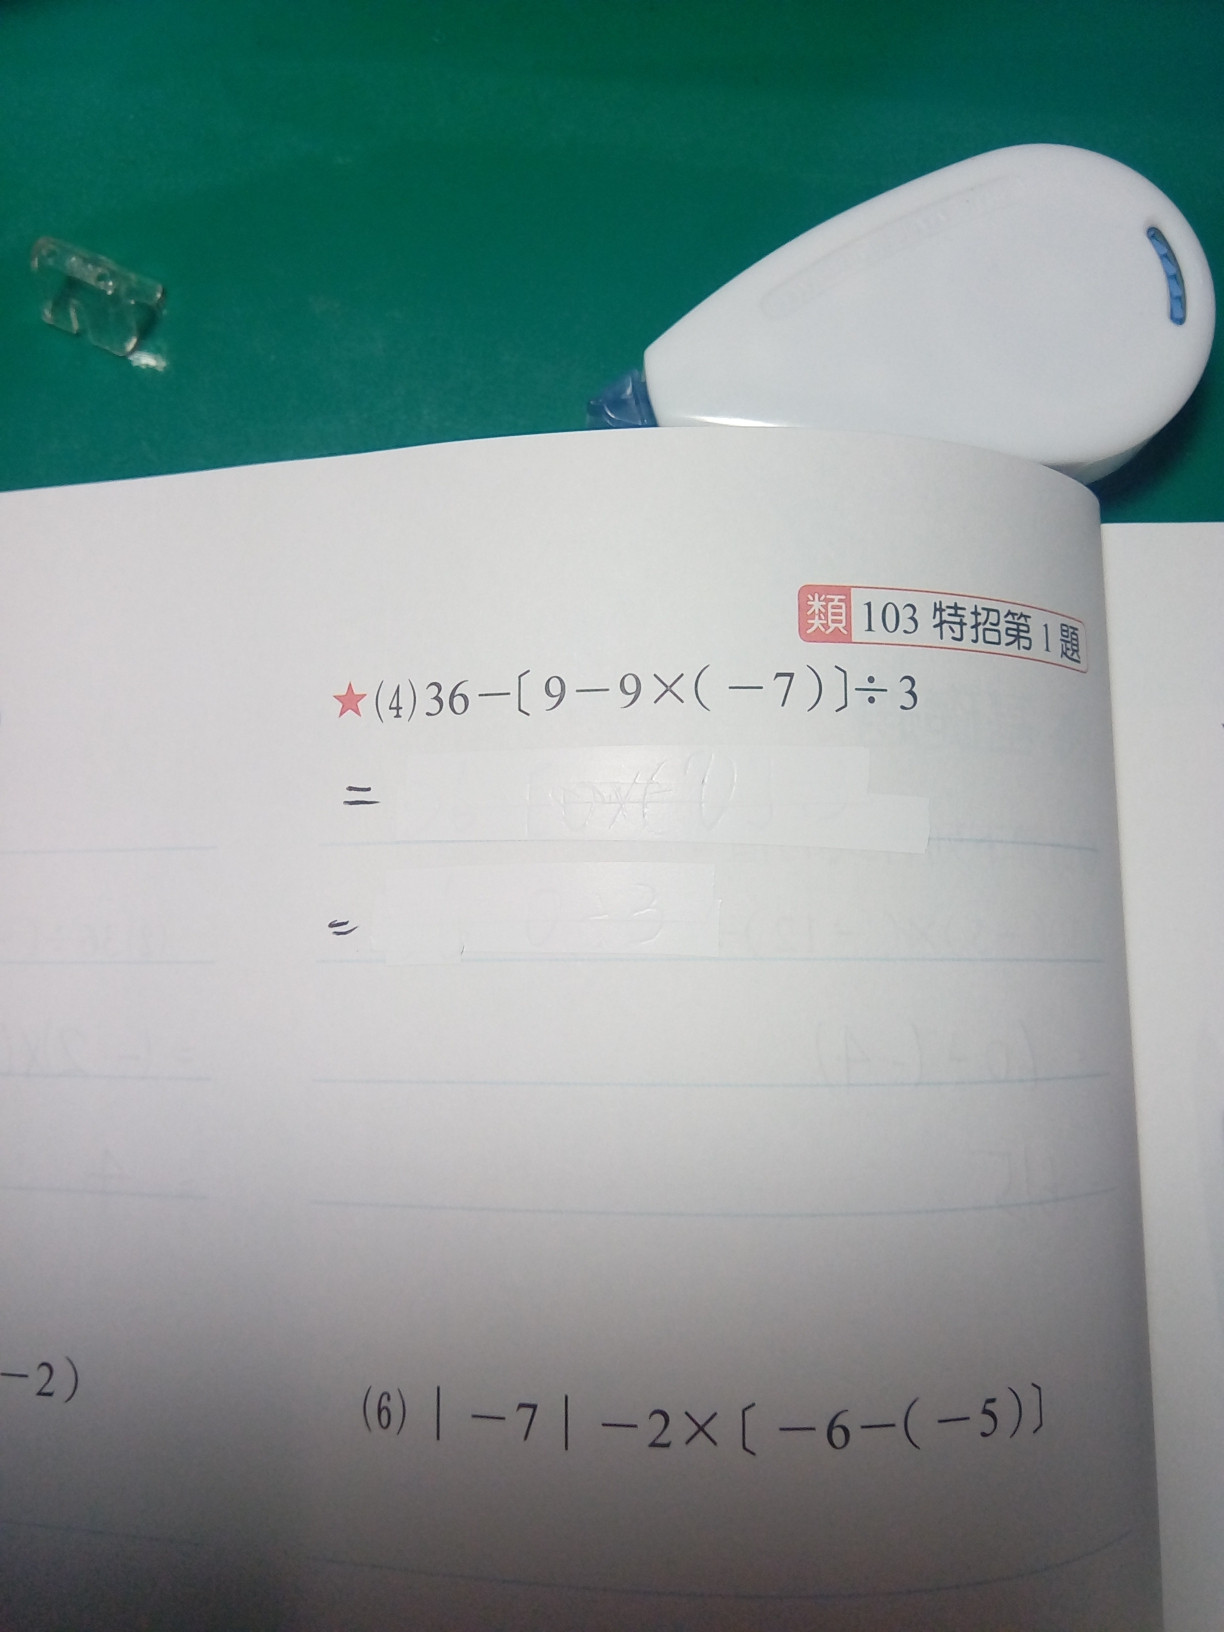 類 103 特招第1題
★(4)36－〔9－9×(－7)〕÷3
=
=
－2)
(6)｜－7｜－2×〔－6－(－5)〕